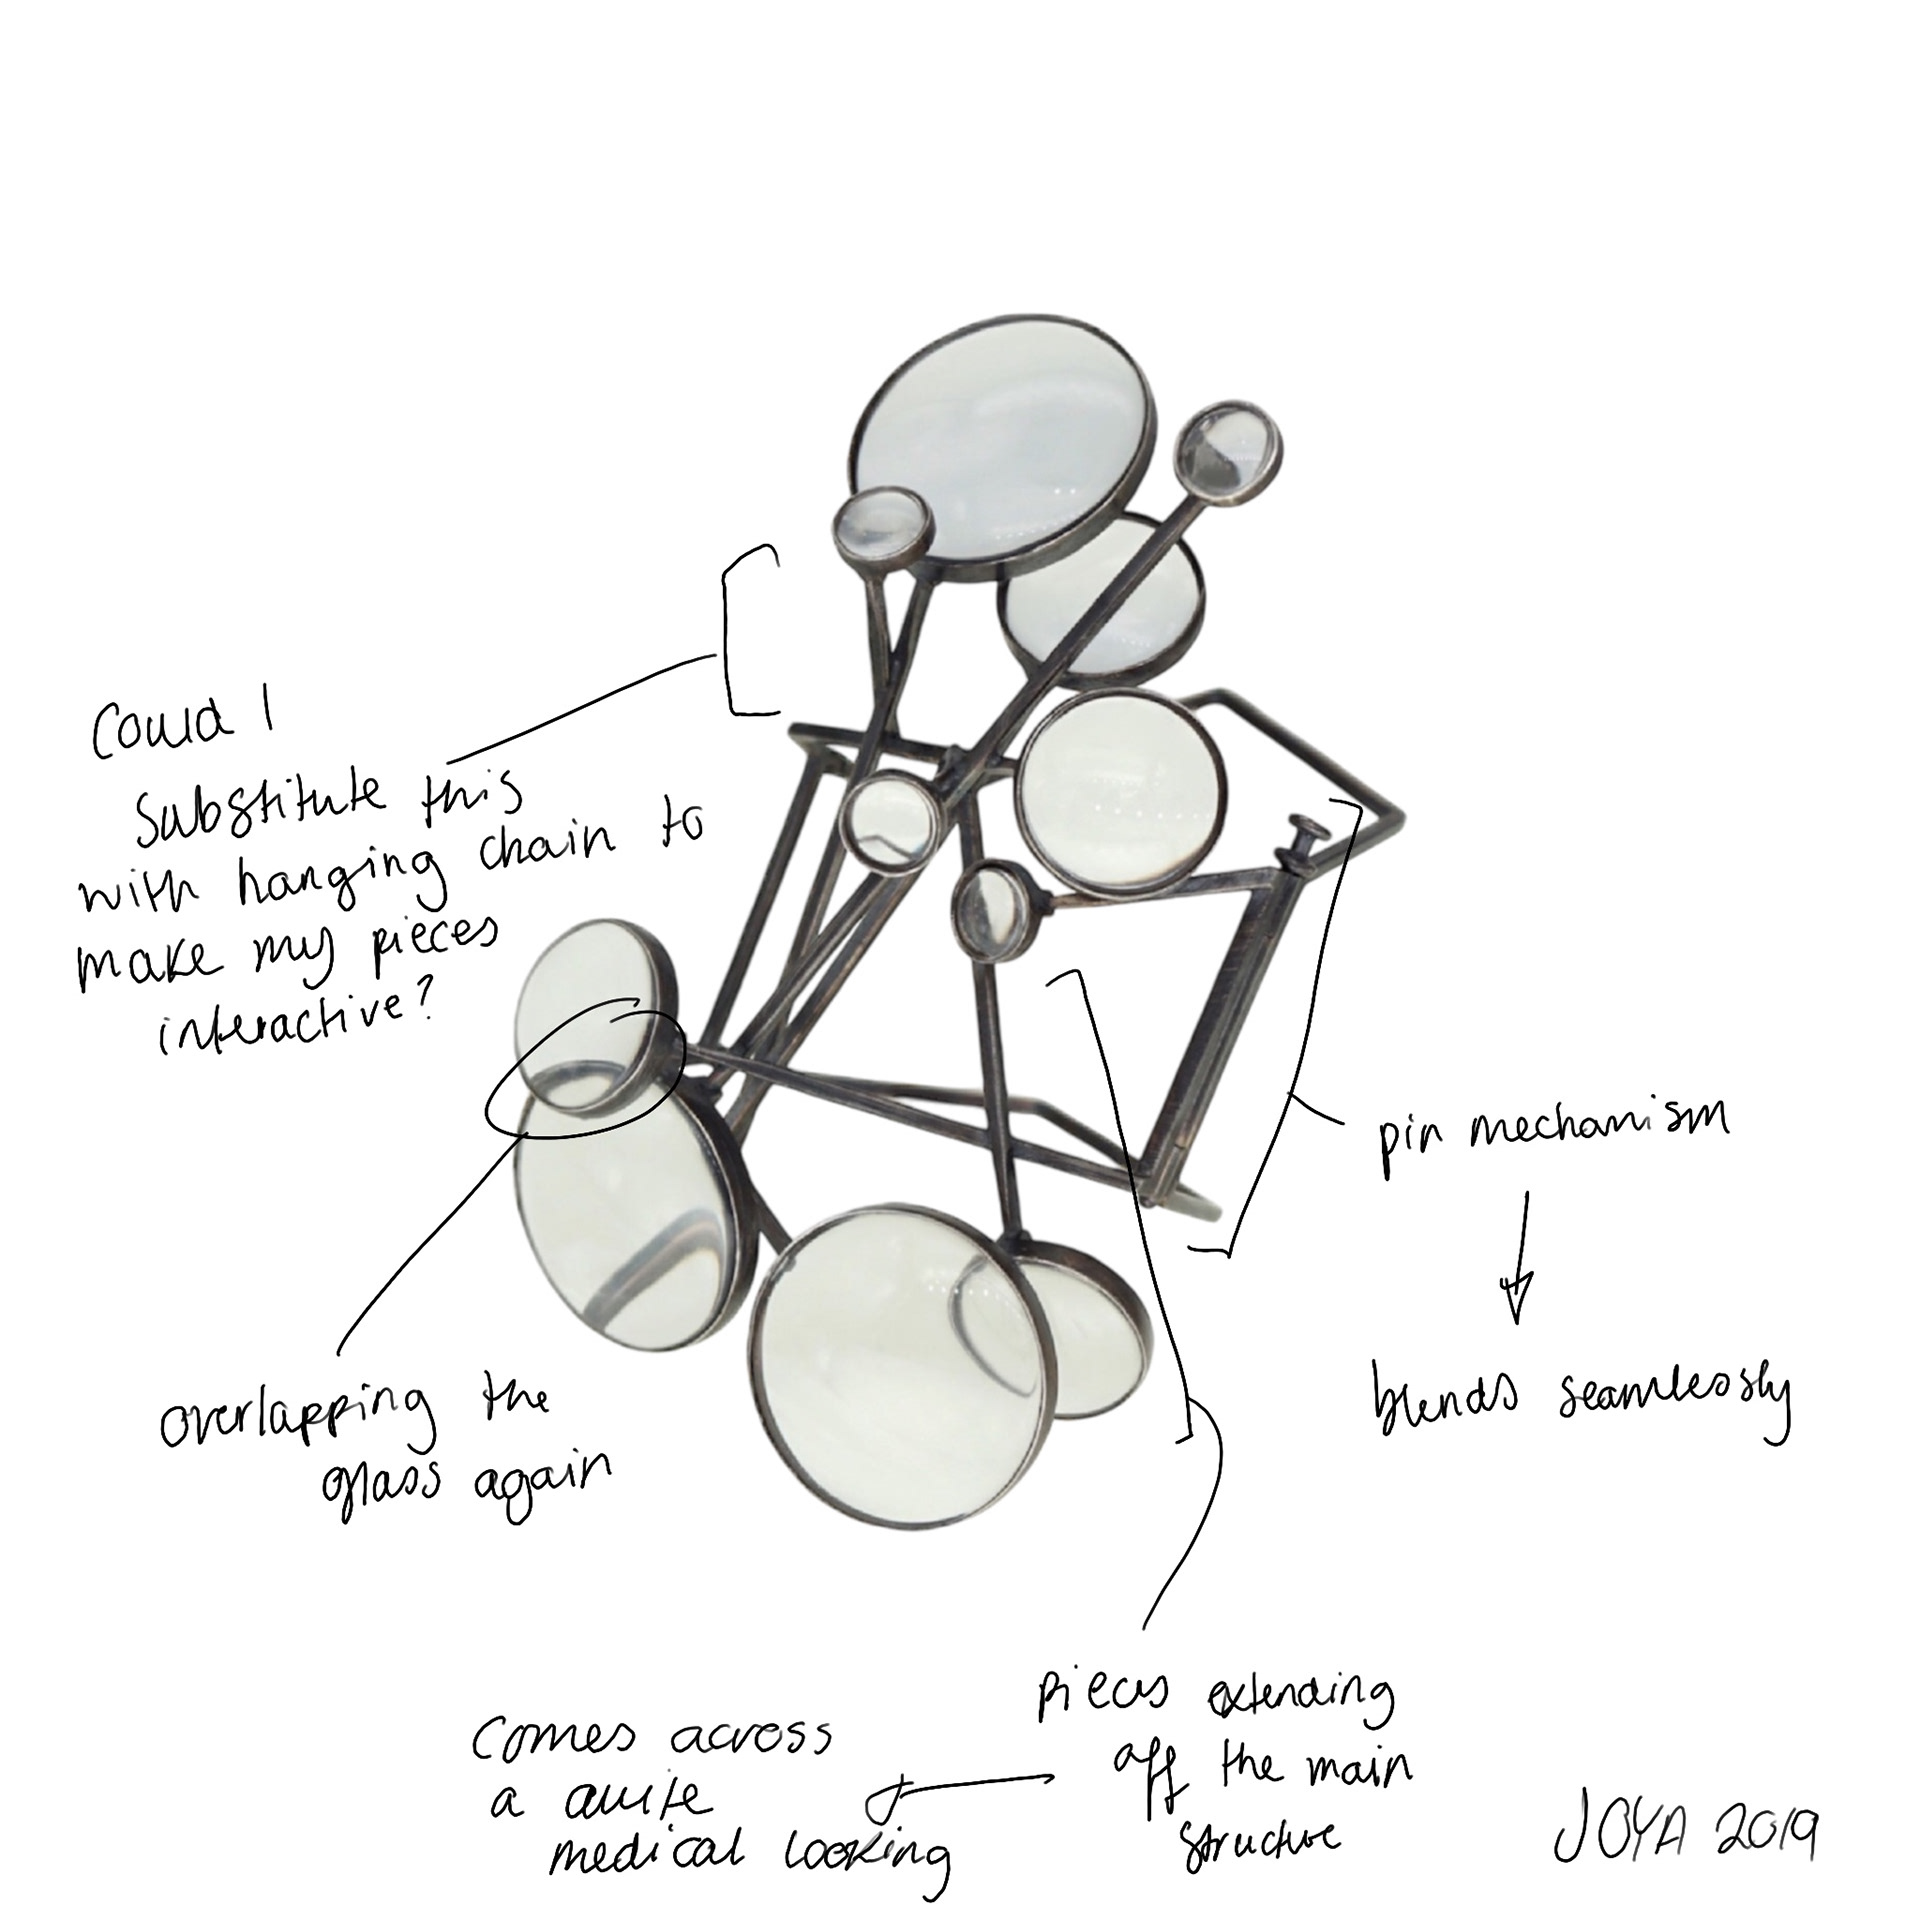 Could I
substitute this
with hanging chain to
make my pieces
interactive?
pin mechanism
blends seamlessly
overlapping the
glass again
pieces extending
off the main
structure
comes across
a quite
medical looking
JOYA 2019